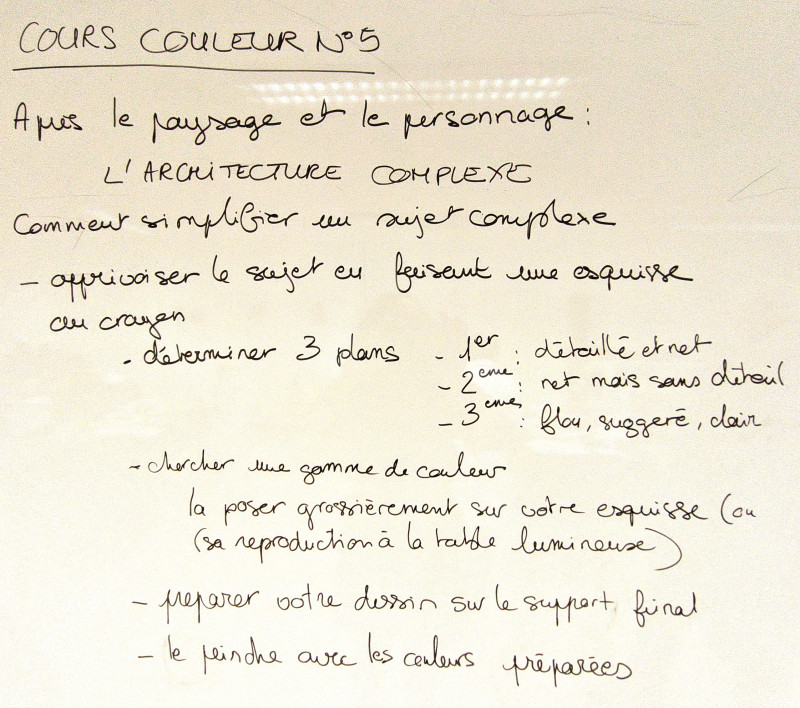 COURS COULEUR N°5
Après le paysage et le personnage :
L'ARCHITECTURE COMPLEXE
Comment simplifier un sujet complexe
- apprivoiser le sujet en faisant une esquisse
au crayon
- déterminer 3 plans - 1er : détaillé et net
- 2ème : net mais sans détail
- 3ème : flou, suggeré, clair
- chercher une gamme de couleur
la poser grossièrement sur votre esquisse (ou
(sa reproduction à la table lumineuse)
- preparer votre dessin sur le support final
- le peindre avec les couleurs préparées